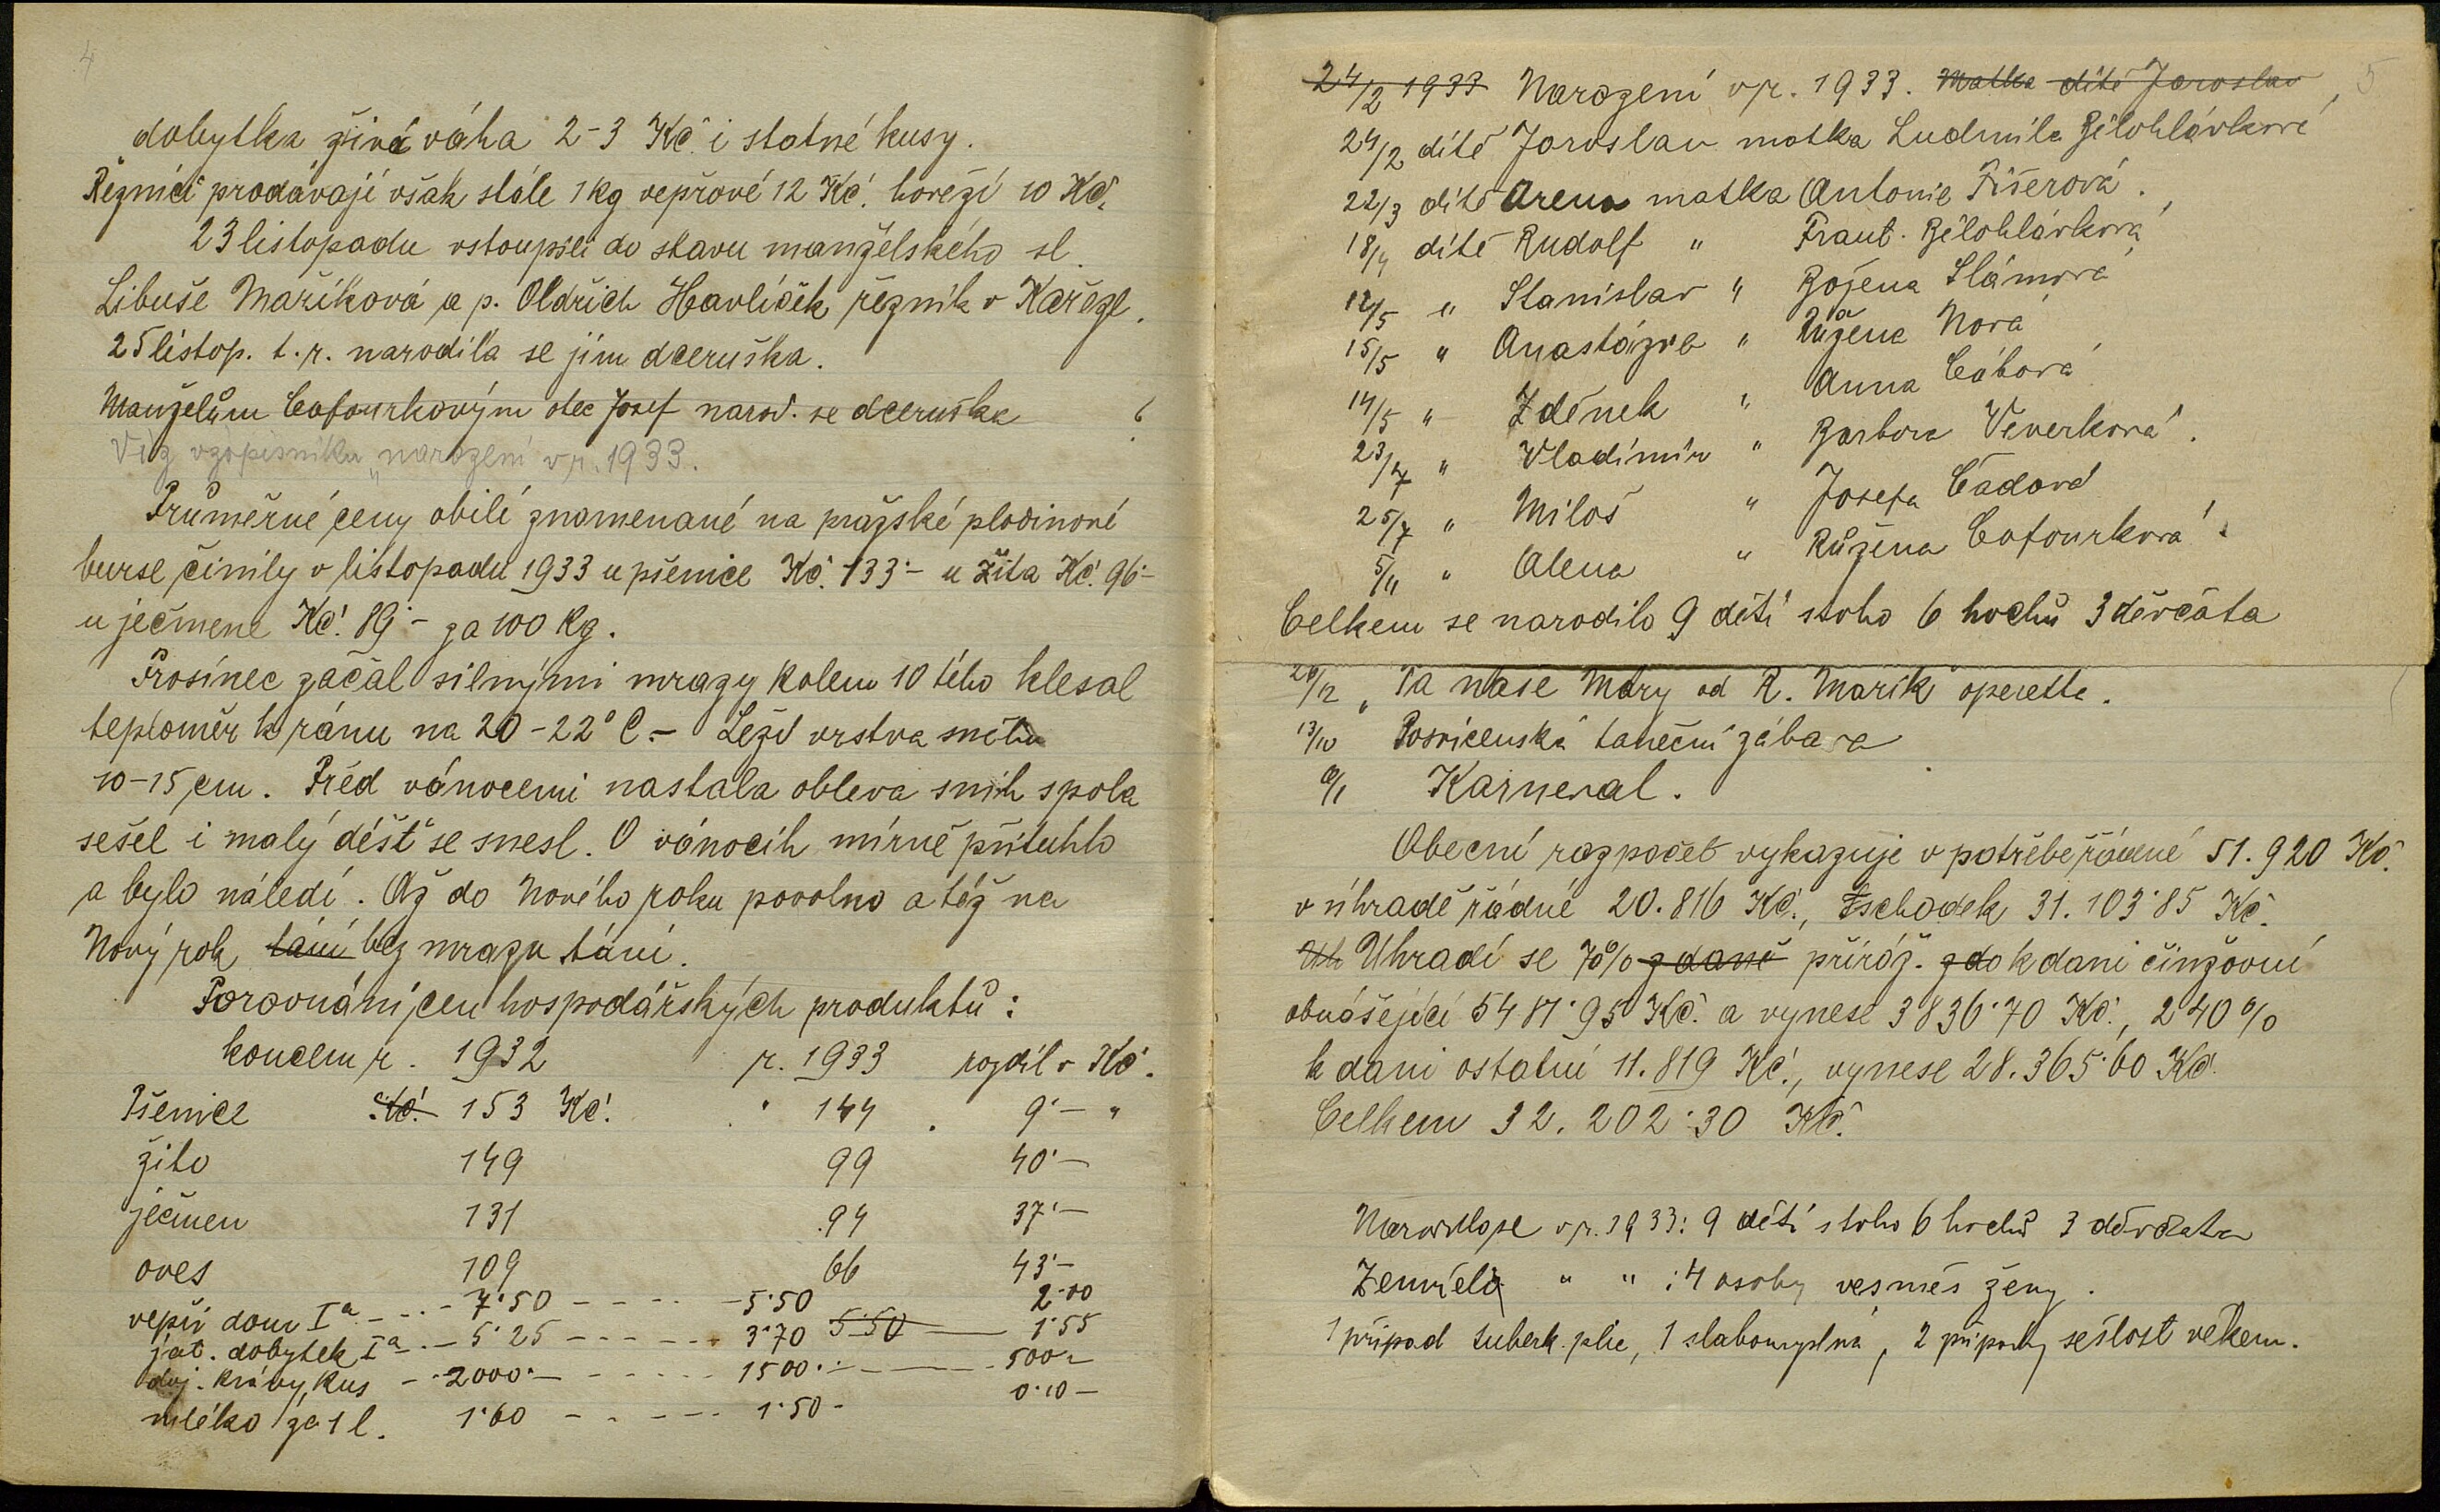 4
dobytka živá váha 2-3 Kč. i statné kusy.
Řezníci prodávají však stále 1 kg vepřové 12 Kč. hovězí 10 Kč.
23 listopadu vstoupili do stavu manželského sl.
Libuše Maříková a p. Oldřich Havlíček řezník v Kařeze.
25 listop. t. r. narodila se jim dceruška.
Manželům Cafourkovým otec Josef narod. se dceruška
Viz vzápisníku „narození v r. 1933.
Průměrné ceny obilí znamenané na pražské plodinové
burse činily v listopadu 1933 u pšenice Kč. 133·- u žita Kč. 96·-
u ječmene Kč. 89·- za 100 kg.
Prosinec začal silnými mrazy kolem 10 tého klesal
teploměr k ránu na 20-22° C.- Leží vrstva sněhu
10-15 cm. Před vánocemi nastala obleva sníh spola
sešel i malý déšť se snesl. O vánocih mírně přituhlo
a bylo náledí. Až do Nového roku povolno a též na
Nový rok tání bez mrazu tání.
Porovnání cen hospodářských produktů:
koncem r. 1932 r. 1933 rozdíl v Kč.
Pšenice Kč. 153 Kč. " 144 . 9·- "
žito 149 99 40·-
ječmen 131 94 37·-
oves 109 66 43·-
vepři dom Iª - - - 7·50 - - - - 5·50 2·00
jat. dobytek Iª - - 5·25 - - - - 3·70 5·50 - 1·55
doj. krávy kus - - 2000·- - - - - 1500·- - 500·-
mléko za 1 l. 1·60 - - - - 1·50 - 0·10 -
5
24/2 1933 Narození v r. 1933. Matka dítě Jaroslav
24/2 dítě Jaroslav matka Ludmila Bělohlávková
22/3 dítě matka Antonie Fišerová.
18/4 dítě Rudolf " Frant. Bělohlávková
12/5 " Stanislav " Božena Slámová
15/5 " Anastázie " Růžena Nová
14/5 " Zděnek " Anna Cábová
23/7 " Vladimír " Barbora Veverková.
25/7 " Miloš " Josefa Čadová
5/11 " Alena " Růžena Cafourková.
Celkem se narodilo 9 dětí stoho 6 hochů 3 děvčáta
26/12 „Ta naše Máry od R. Mařík opereta.
13/10 Posvícenská taneční zábava
6/1 Karneval.
Obecní rozpočet vykazuje v potřebě řádné 51.920 Kč.
v úhradě řádné 20.816 Kč., schodek 31.103·85 Kč.
Uh Uhradí se 70% z daně příráž. z do k dani činžovní
obnášející 5481·95 Kč. a vynese 3836·70 Kč., 240%
k dani ostatní 11.819 Kč., vynese 28.365·60 Kč.
Celkem 32.202·30 Kč.
Narodilo se v r. 1933: 9 dětí stoho 6 hochů 3 děvčata
Zemřelo " " : 4 osoby vesměs ženy.
1 případ tuberk. plic, 1 slabomyslná, 2 případy sešlost věkem.